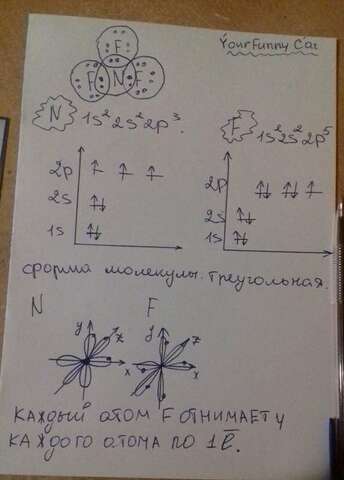 YourFunny Cat
F
F N F
N 1s² 2s² 2p³.
F 1s² 2s² 2p⁵
2p
2s
1s
2p
2s
1s
форма молекулы: треугольная.
N F
y z x
y z x
каждый атом F отнимает у
каждого атома по 1e̅.